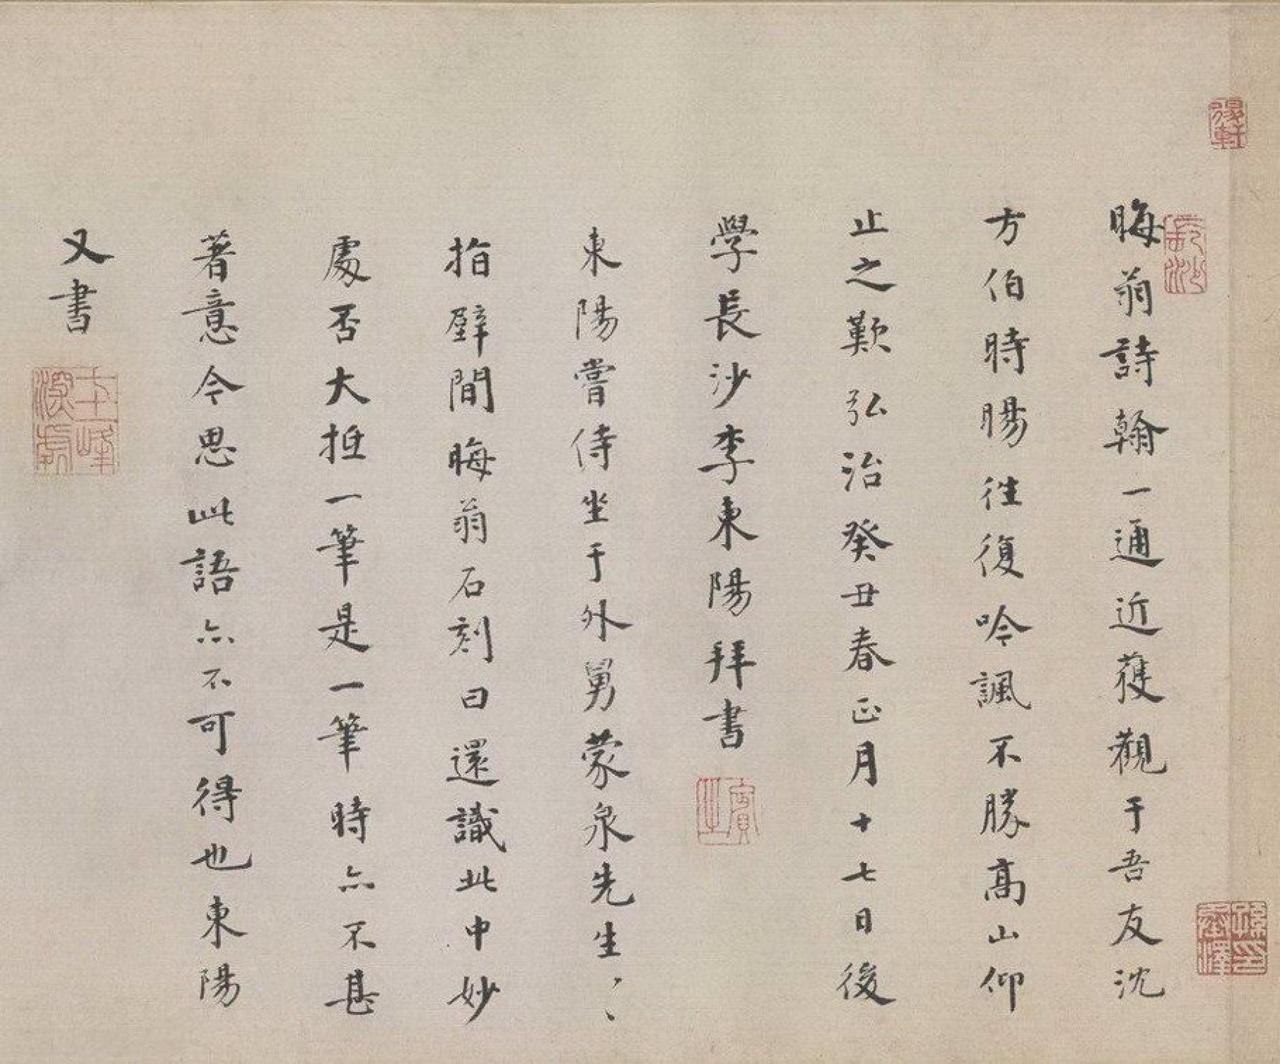 晦翁詩翰一通近獲觀于吾友沈
方伯時暘徃復吟諷不勝高山仰
止之歎弘治癸丑春正月十七日後
學長沙李東陽拜書
東陽嘗侍坐于外舅蒙泉先生〻〻
指壁間晦翁石刻曰還識此中妙
處否大抵一筆是一筆時亦不甚
著意今思此語亦不可得也東陽
又書
長沙
賓之